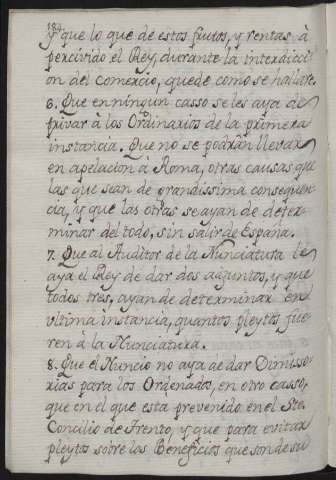 184
y que lo que de estos frutos, y rentas à
percivido el Rey, durante la interdicci
on del comercio, quede como se hallare.
6. Que en ningun casso se les aya de
privar à los Ordinarios de la primera
instancia. Que no se podran llevar
en apelacion à Roma, otras causas que
las que sean de grandissima consequen
cia, y que las otras se ayan de deter-
minar del todo, sin salir de España.
7. Que al Auditor de la Nunciatura le
aya el Rey de dar dos adjuntos, y que
todos tres, ayan de determinar en
ultima instancia, quantos pleytos fue
ren á la Nunciatura.
8. Que el Nuncio no aya de dar Dimisso-
rias para los Ordenados, en otro casso,
que en el que està prevenido en el Sto.
Concilio de Trento, y que para evitar
pleytos sobre los Beneficios que son de su